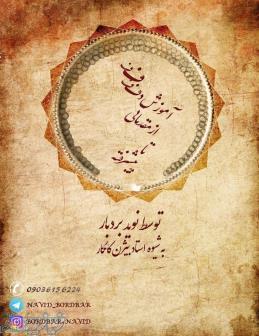 آموزش دف نوازی
از مقدماتی
تا پیشرفته
توسط نوید بردبار
به شیوه استاد بیژن کامکار
09036156224
NAVID_BORDBAR
BORDBAR.NAVID